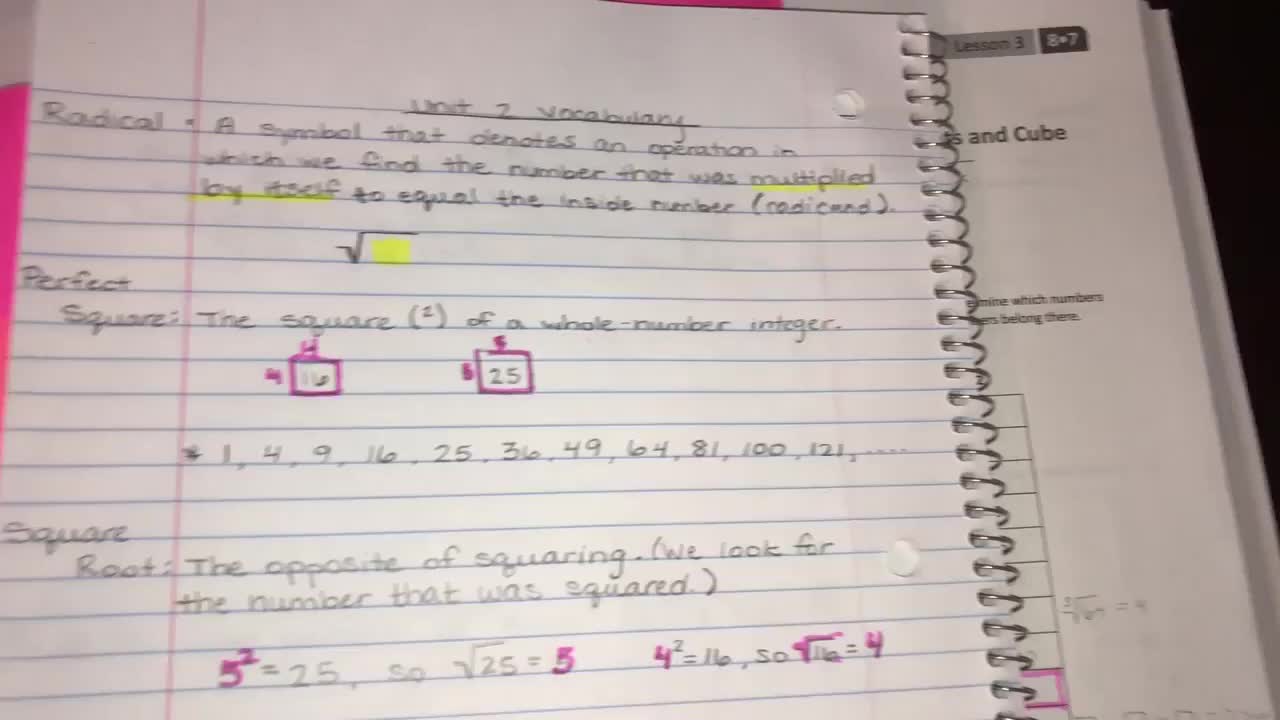 Lesson 3 8•7
Unit 2 Vocabulary
Radical - A symbol that denotes an operation in
which we find the number that was multiplied
by itself to equal the inside number (radicand).
√
and Cube
Perfect
Square: The square (²) of a whole-number integer.
which numbers
belong there.
4 5
4 16 5 25
* 1, 4, 9, 16, 25, 36, 49, 64, 81, 100, 121, ....
Square
Root: The opposite of squaring. (We look for
the number that was squared.)
5² = 25, so √25 = 5 4² = 16, so √16 = 4